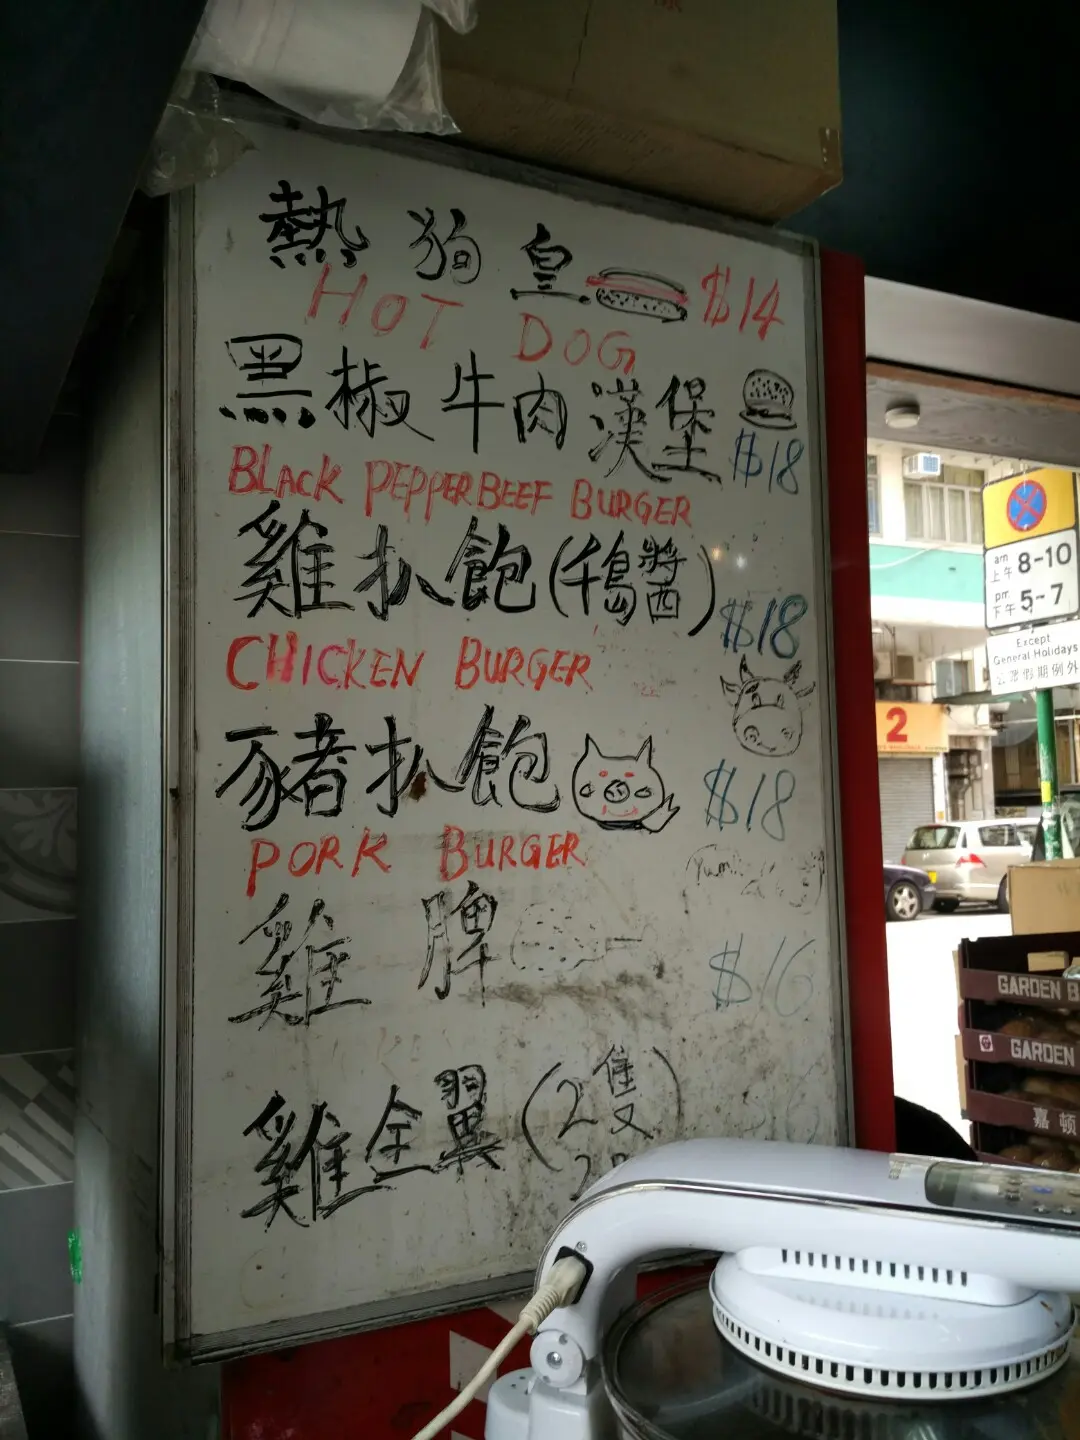 熱狗皇 $14
HOT DOG
黑椒牛肉漢堡 $18
BLACK PEPPER BEEF BURGER
雞扒飽(千島醬) $18
CHICKEN BURGER
豬扒飽 $18
PORK BURGER
雞脾 $16
雞全翼(2隻
am 上午 8-10
pm 下午 5-7
Except
General Holidays
公眾假期例外
2
GARDEN B
GARDEN
嘉頓